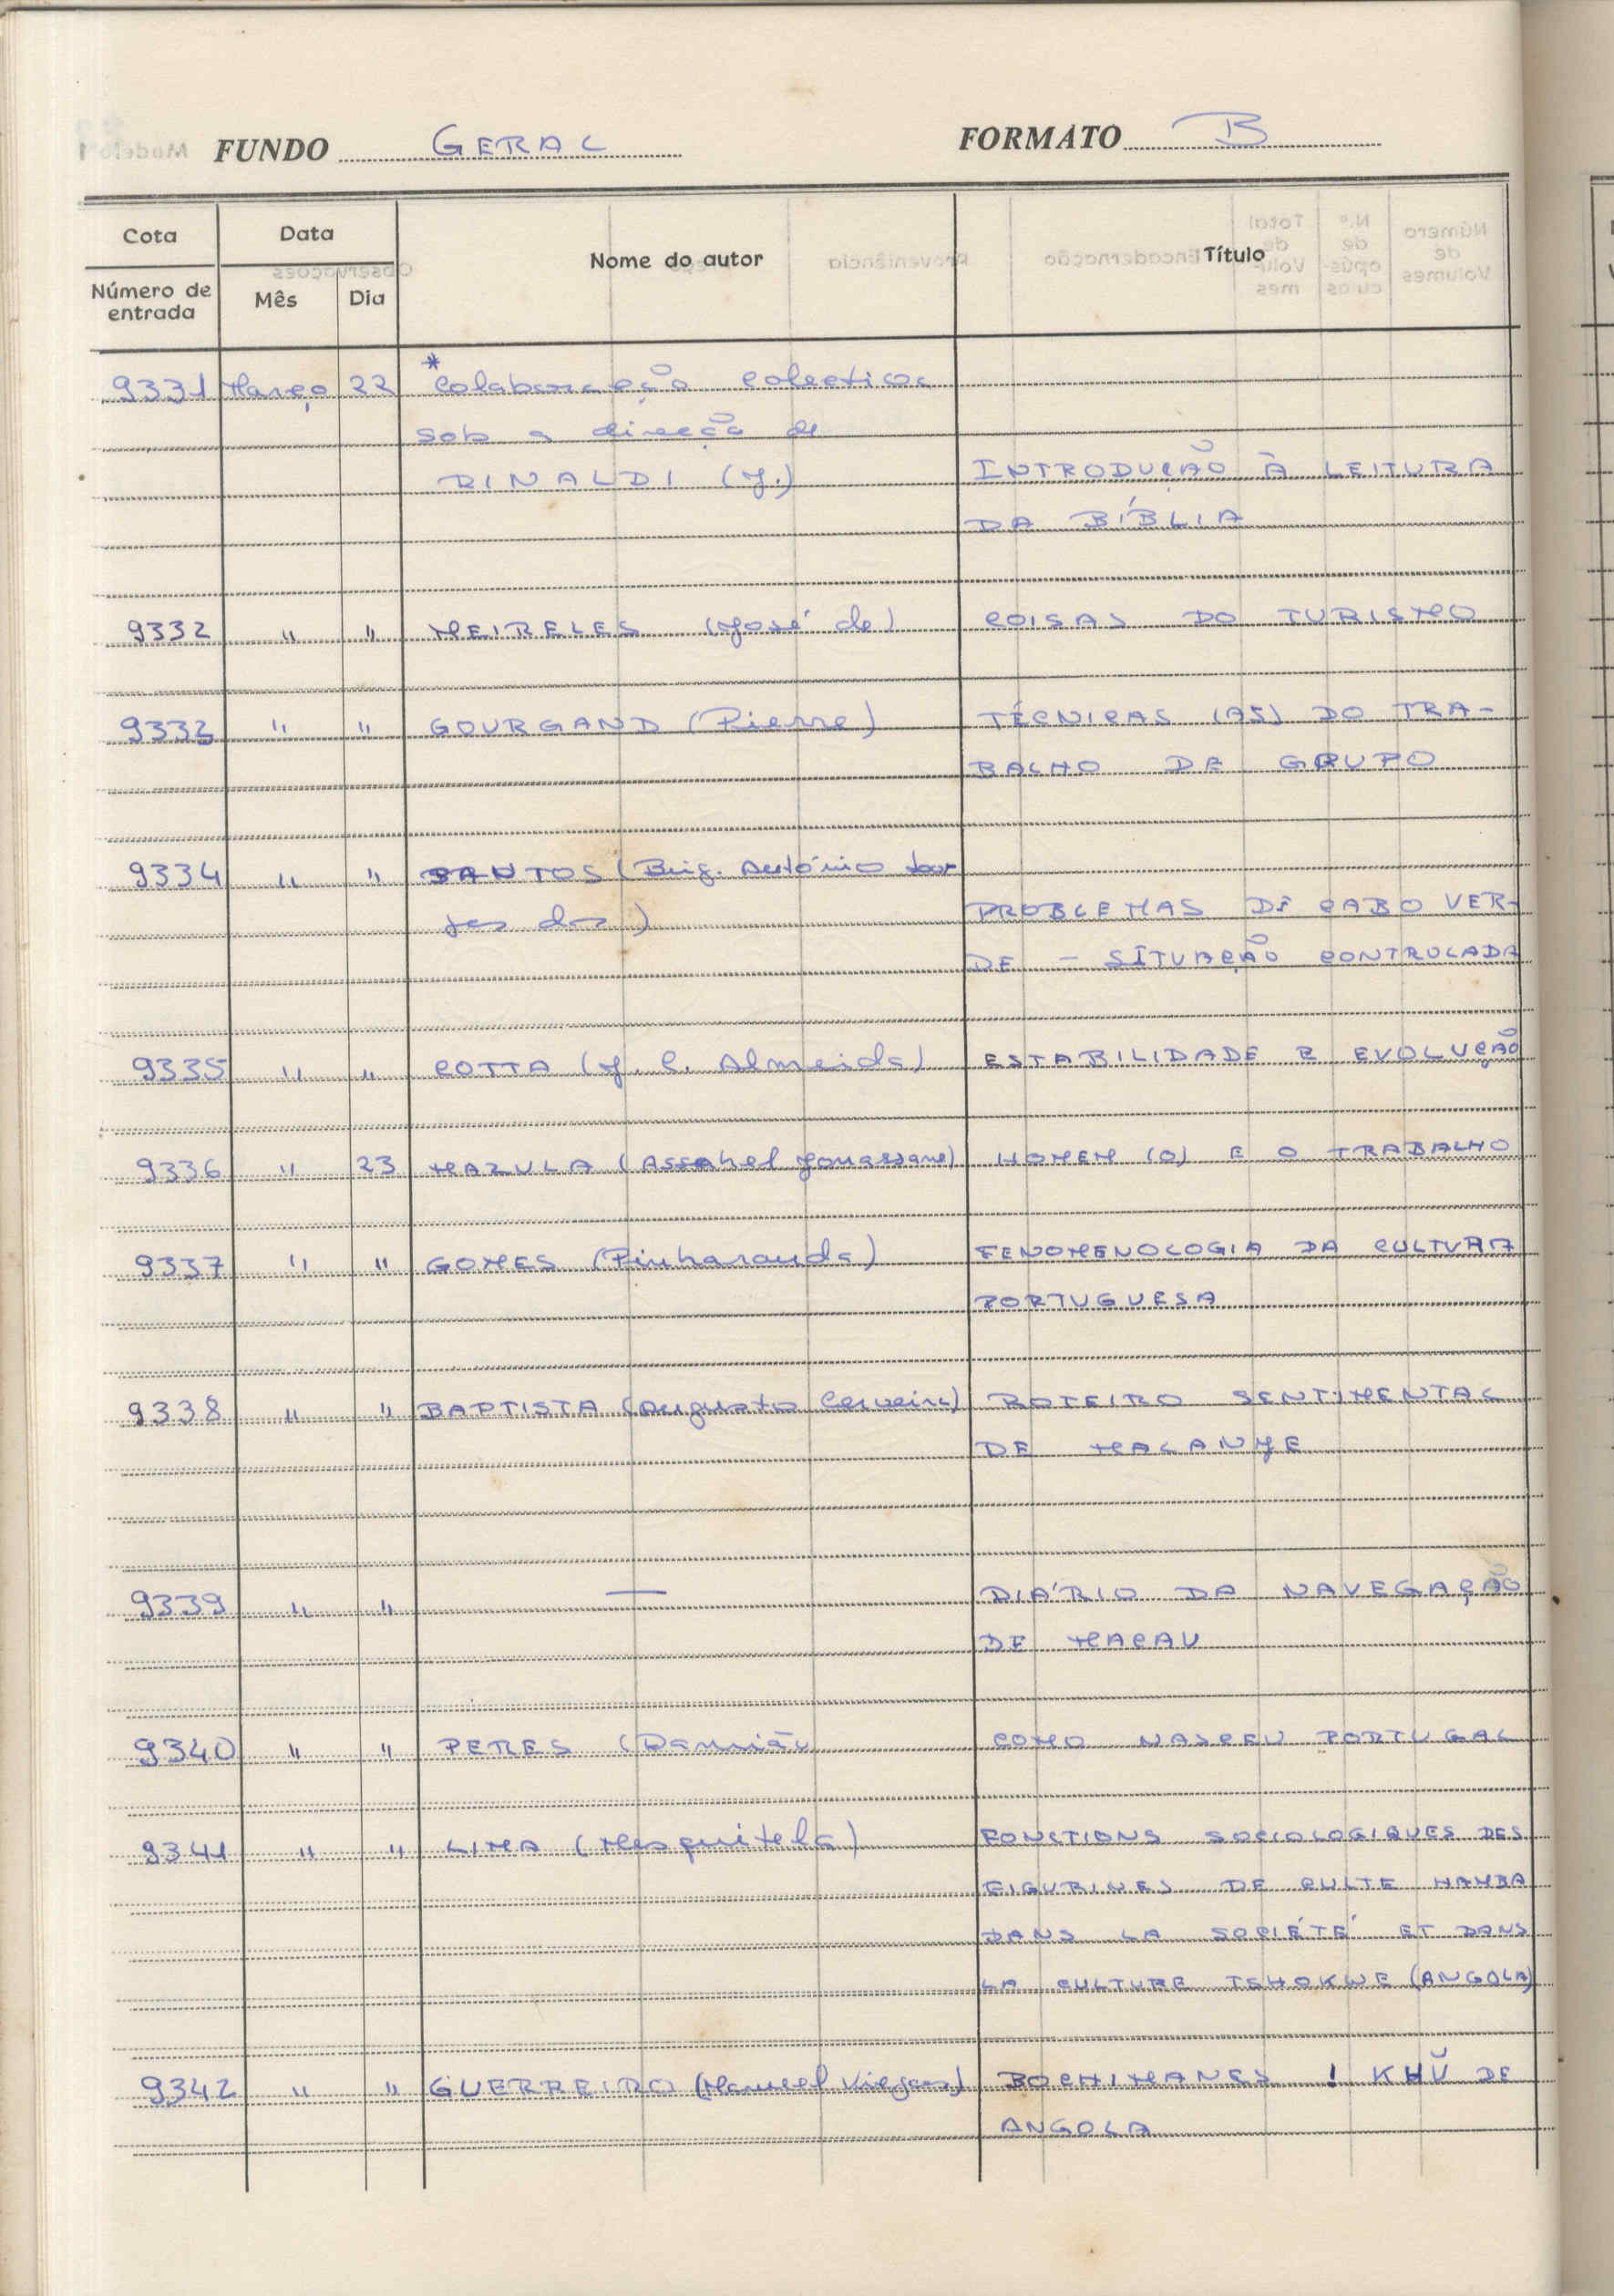 FUNDO GERAL FORMATO B
Cota Data Nome do autor Título
Número de entrada Mês Dia
9331 Março 22 *Colaboração colectiva
sob a direcção de
RINALDI (J.) INTRODUÇÃO À LEITURA
DA BÍBLIA
9332 " " MEIRELES (José de) COISAS DO TURISMO
9333 " " GOURGAND (Pierre) TÉCNICAS (AS) DO TRA-
BALHO DE GRUPO
9334 " " SANTOS (Brig. António Lor
jes dos) PROBLEMAS DE CABO VER-
DE - SITUAÇÃO CONTROLADA
9335 " " COTTA (J. C. Almeida) ESTABILIDADE E EVOLUÇÃO
9336 " 23 MAZULA (Assahel Jonassane) HOMEM (O) E O TRABALHO
9337 " " GOMES (Pinharanda) FENOMENOLOGIA DA CULTURA
PORTUGUESA
9338 " " BAPTISTA (Augusto Cerveira) ROTEIRO SENTIMENTAL
DE MALANJE
9339 " " — DIÁRIO DA NAVEGAÇÃO
DE MACAU
9340 " " PERES (Damião COMO NASCEU PORTUGAL
9341 " " LIMA (Mesquitela) FONCTIONS SOCIOLOGIQUES DES
FIGURINES DE CULTE HAMBA
DANS LA SOCIÉTÉ ET DANS
LA CULTURE TSHOKWE (ANGOLA)
9342 " " GUERREIRO (Manuel Viegas) BOCHIMANES ! KHŨ DE
ANGOLA